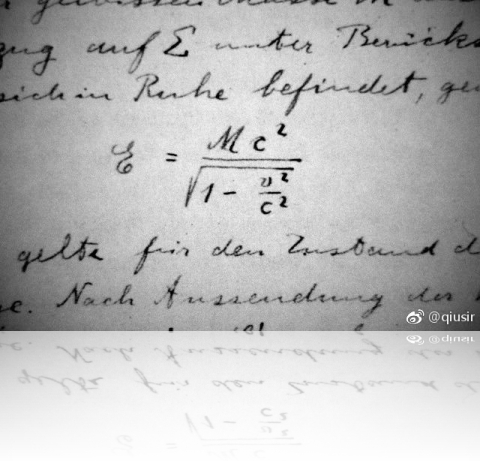 gewissen Masse M
zug auf Σ unter Berücks
sich in Ruhe befindet, ge
ℰ = Mc² / √(1 - v²/c²)
gelte für den Zustand d
e. Nach Aussendung des
@qiusir